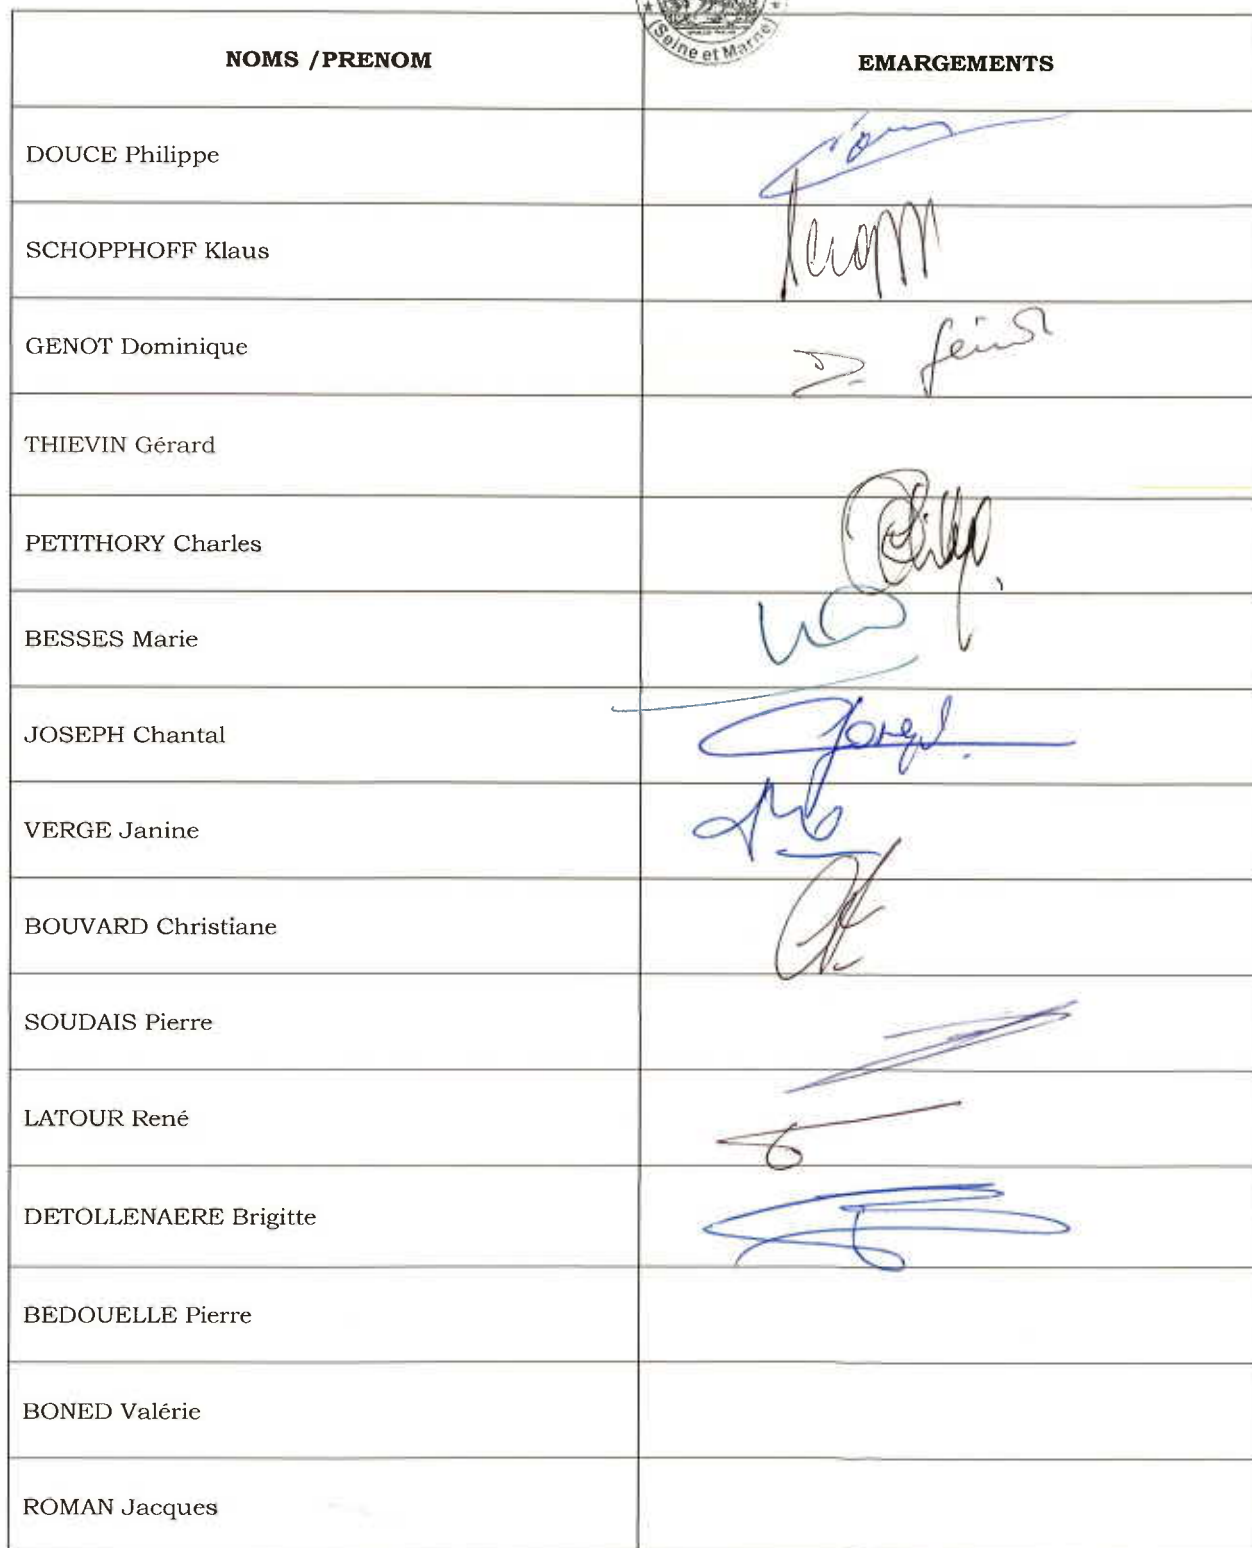 (Seine et Marne)
NOMS /PRENOM
EMARGEMENTS
DOUCE Philippe
SCHOPPHOFF Klaus
GENOT Dominique
D. Génot
THIEVIN Gérard
PETITHORY Charles
BESSES Marie
JOSEPH Chantal
VERGE Janine
BOUVARD Christiane
SOUDAIS Pierre
LATOUR René
DETOLLENAERE Brigitte
BEDOUELLE Pierre
BONED Valérie
ROMAN Jacques